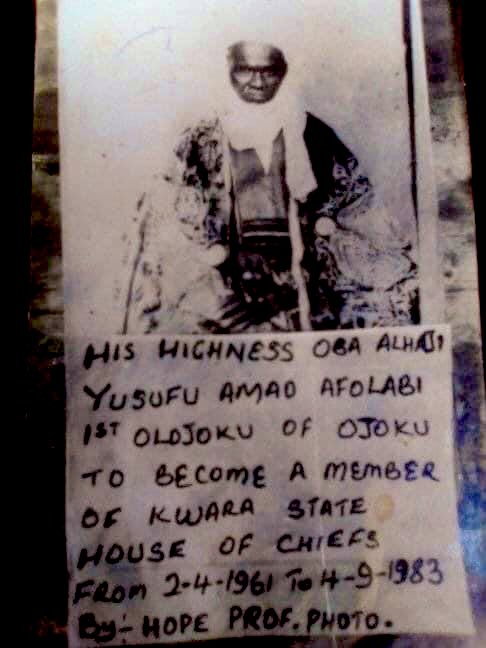 HIS HIGHNESS OBA ALHAJI
YUSUFU AMAO AFOLABI
1ST OLOJOKU OF OJOKU
TO BECOME A MEMBER
OF KWARA STATE
HOUSE OF CHIEFS
FROM 2-4-1961 To 4-9-1983
By:- HOPE PROF. PHOTO.